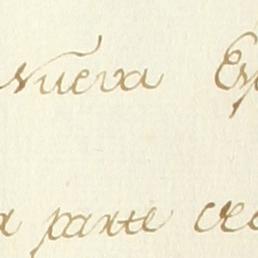 Nueva Esp
a parte cre